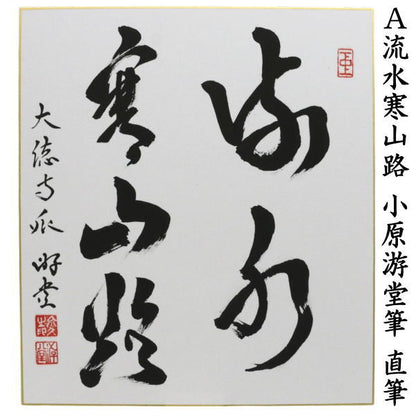 A流水寒山路 小原游堂筆 直筆
流水
寒山路
大徳寺派 游堂